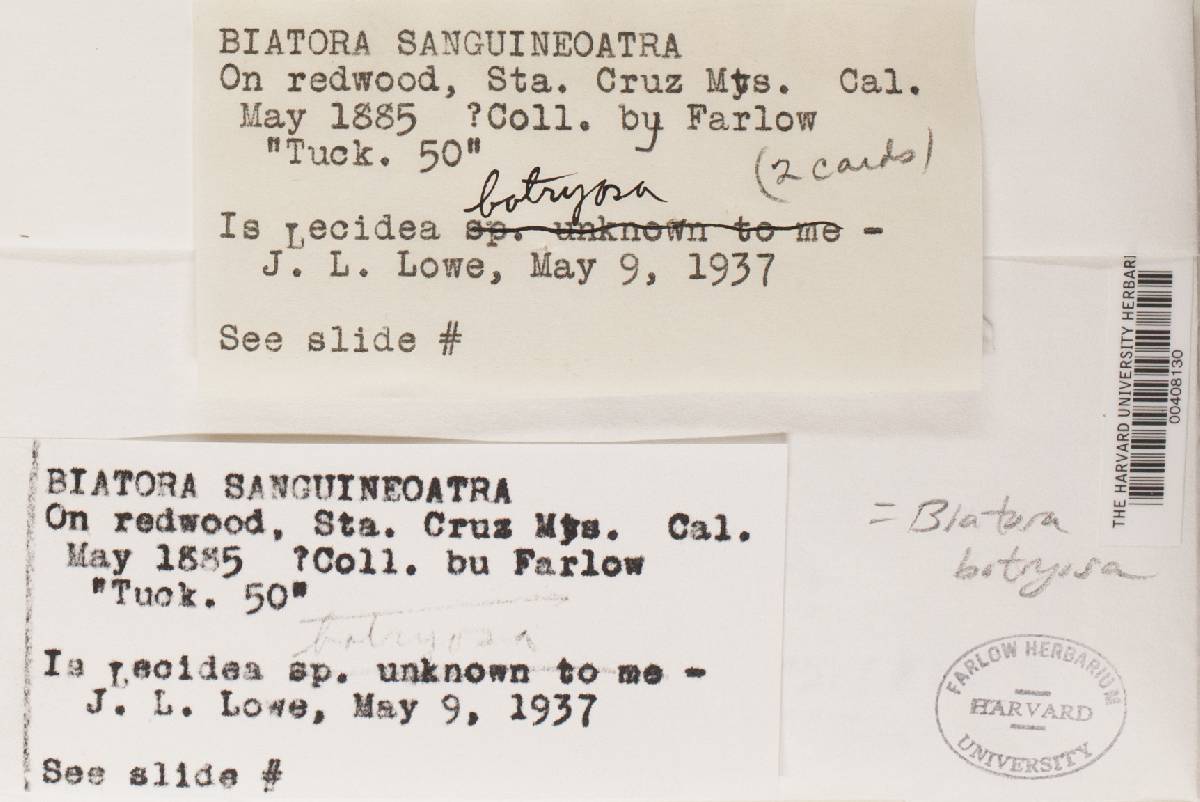 BIATORA SANGUINEOATRA
On redwood, Sta. Cruz Mts. Cal.
May 1885 ?Coll. by Farlow
"Tuck. 50"
(2 cards)
botryosa
Is Lecidea sp. unknown to me -
J. L. Lowe, May 9, 1937
See slide #
BIATORA SANGUINEOATRA
On redwood, Sta. Cruz Mts. Cal.
May 1885 ?Coll. bu Farlow
"Tuck. 50"
botryosa
Is Lecidea sp. unknown to me -
J. L. Lowe, May 9, 1937
See slide #
THE HARVARD UNIVERSITY HERBARI
00408130
= Biatora
botryosa
FARLOW HERBARIUM
HARVARD
UNIVERSITY